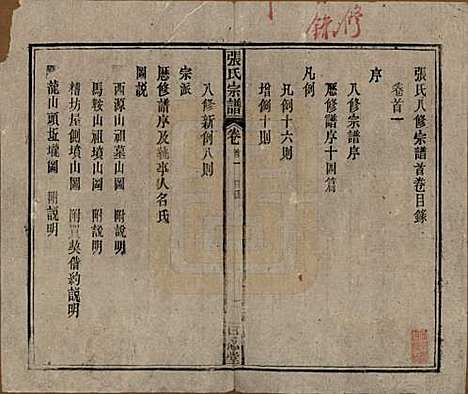 張氏八修宗譜首卷目錄
卷首一
序
八修宗譜序
歷修譜序十四篇
凡例
凡例十六則
增例十則
張氏宗譜
卷首一
八修新例八則
宗派
歷修譜序及執事人名氏
圖說
西源山祖墓山圖 附說明
馬鞍山祖墳山圖 附說明
糟坊屋側墳山圖 附買契借約說明
龍山頭坵壠圖 附說明
修